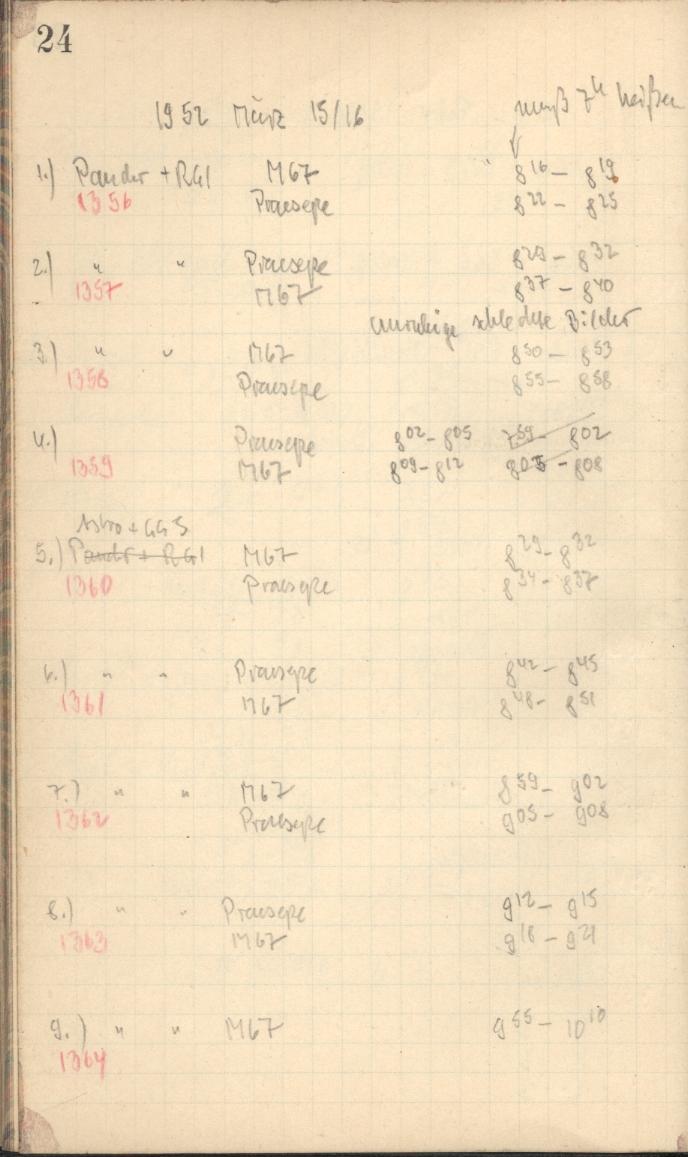 24
muß 7h heißen
1952 März 15/16
1.) Pander + RG1 M67 8 16 – 8 19
1356 Praesepe 8 22 – 8 25
2.) " " Praesepe 8 29 – 8 32
1357 M67 8 37 – 8 40
unruhige schlechte Bilder
3.) " " M67 8 50 – 8 53
1358 Praesepe 8 55 – 8 58
4.) Praesepe 8 02 – 8 05 7 59 – 8 02
1359 M67 8 09 – 8 12 8 05 – 8 08
Astro + GG5
5.) Pander + RG1 M67 8 29 – 8 32
1360 Praesepe 8 34 – 8 37
6.) " " Praesepe 8 42 – 8 45
1361 M67 8 48 – 8 51
7.) " " M67 8 59 – 9 02
1362 Praesepe 9 05 – 9 08
8.) " " Praesepe 9 12 – 9 15
1363 M67 9 18 – 9 21
9.) " " M67 9 55 – 10 10
1364